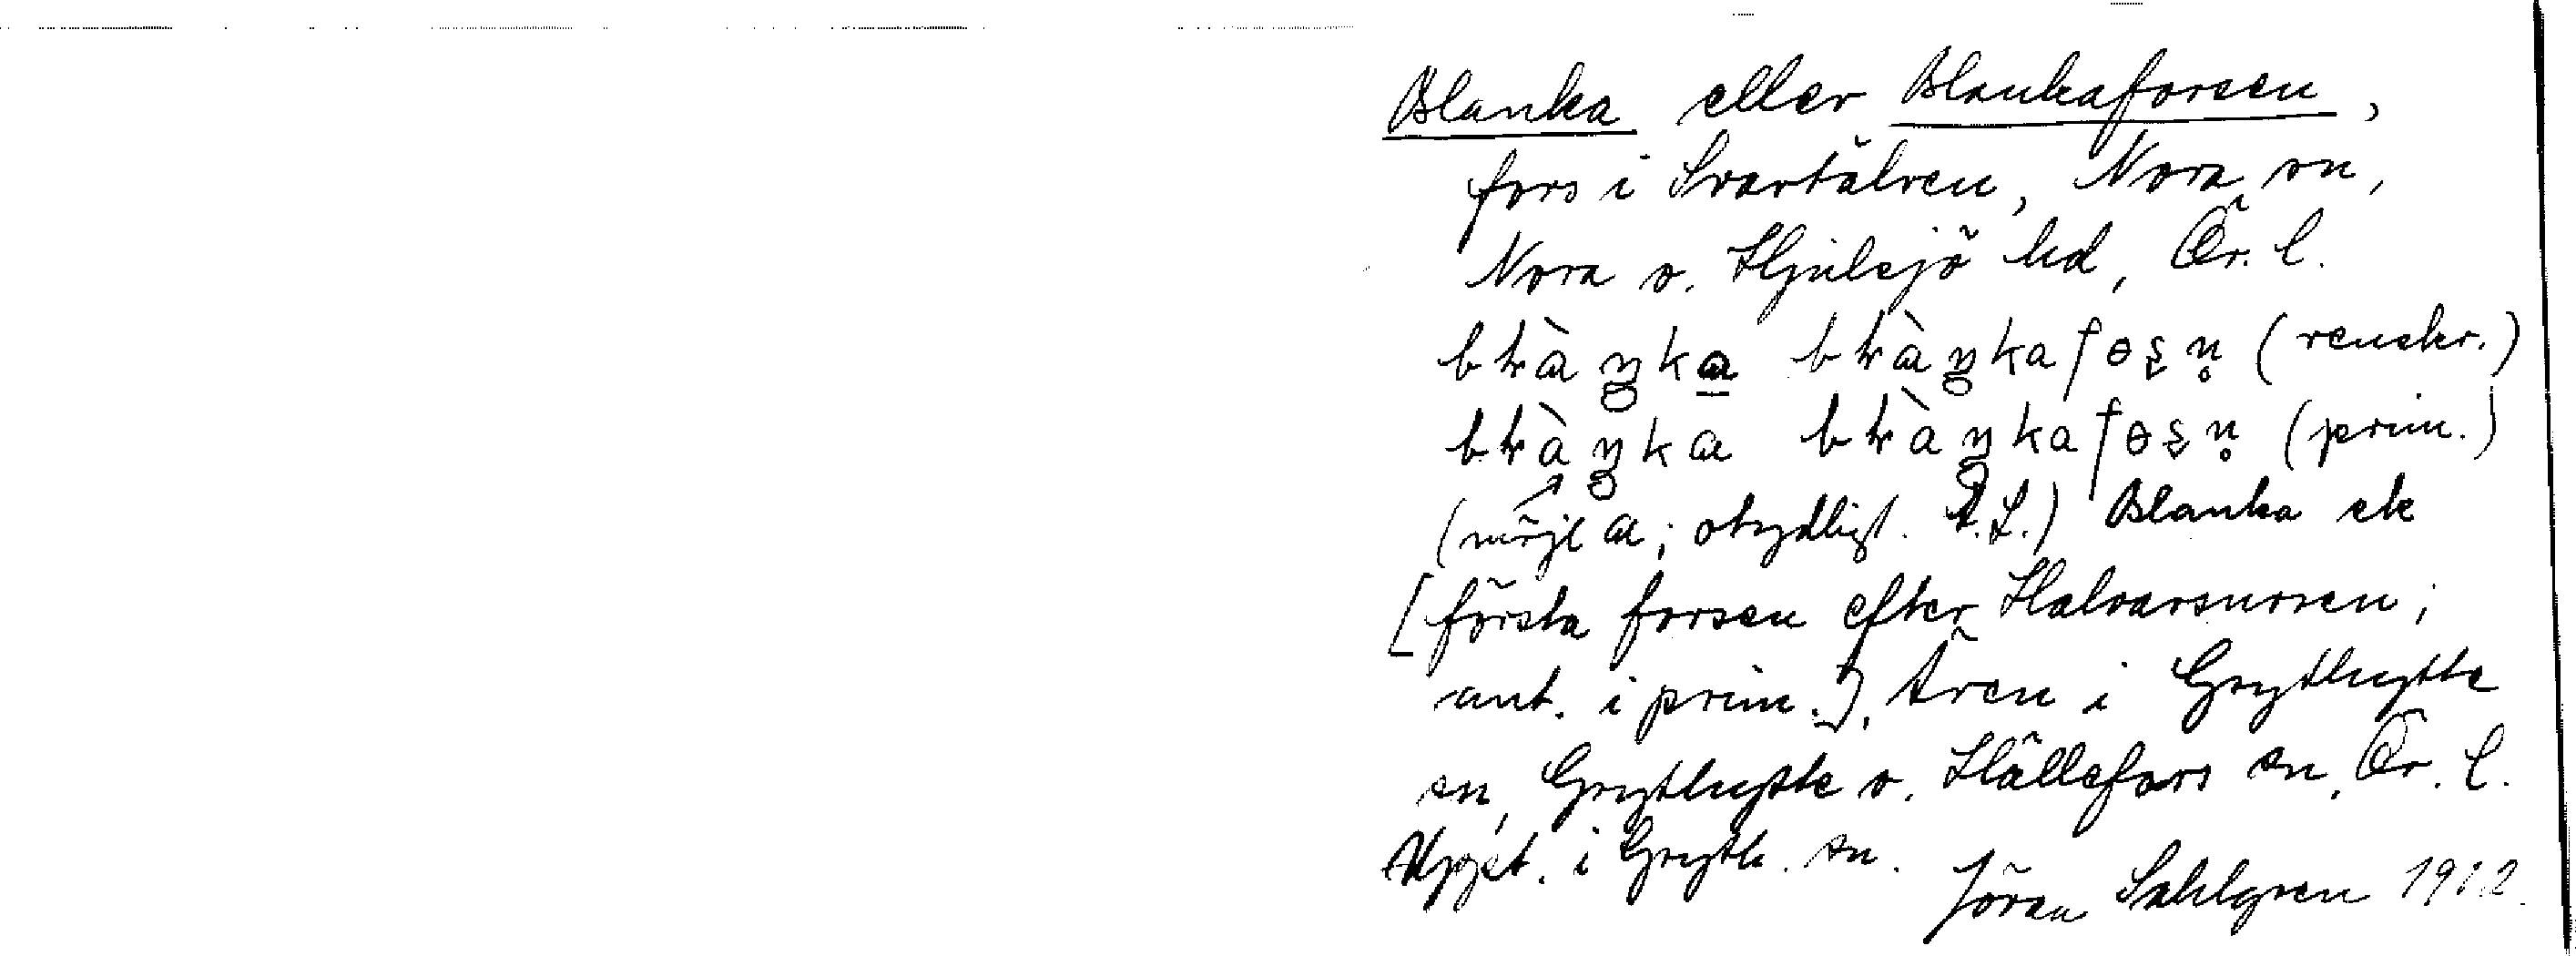 Blanka eller Blankaforsen,
fors i Svartälven, Nora sn,
Nora o. Hjulsjö hd, Ör. l.
bɫàŋka bɫàŋkafɵʂn̥ (renskr.)
bɫàŋka bɫàŋkafɵʂn̥ (prim.)
(möjl a; otydligt. A.L.) Blanka ek
[första forsen efter Halvarsnoren;
ant. i prim.]. Åren i Grythytte
sn, Grythytte o. Hällefors sn, Ör. l.
Uppt. i Gryth. sn. Jöran Sahlgren 1912.